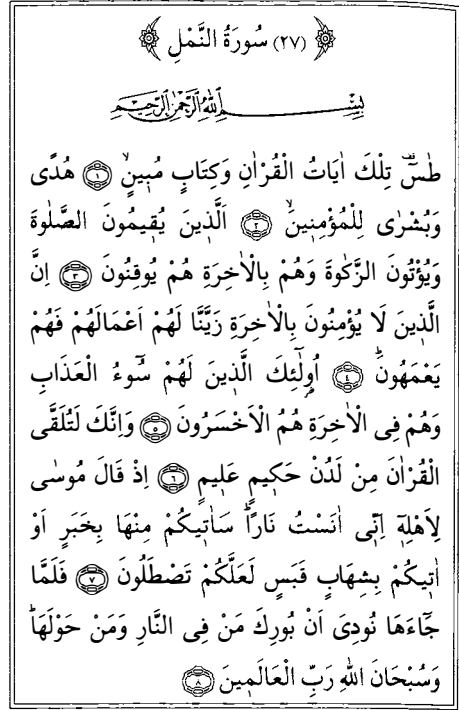 (٢٧) سُورَةُ النَّمْلِ
بِسْمِ اللّٰهِ الرَّحْمٰنِ الرَّحِيمِ
طٰسٓ۠ تِلْكَ اٰيَاتُ الْقُرْاٰنِ وَكِتَابٍ مُب۪ينٍۙ ﴿١﴾ هُدًى
وَبُشْرٰى لِلْمُؤْمِن۪ينَۙ ﴿٢﴾ اَلَّذ۪ينَ يُق۪يمُونَ الصَّلٰوةَ
وَيُؤْتُونَ الزَّكٰوةَ وَهُمْ بِالْاٰخِرَةِ هُمْ يُوقِنُونَ ﴿٣﴾ اِنَّ
الَّذ۪ينَ لَا يُؤْمِنُونَ بِالْاٰخِرَةِ زَيَّنَّا لَهُمْ اَعْمَالَهُمْ فَهُمْ
يَعْمَهُونَۜ ﴿٤﴾ اُو۬لٰٓئِكَ الَّذ۪ينَ لَهُمْ سُٓوءُ الْعَذَابِ
وَهُمْ فِى الْاٰخِرَةِ هُمُ الْاَخْسَرُونَ ﴿٥﴾ وَاِنَّكَ لَتُلَقَّى
الْقُرْاٰنَ مِنْ لَدُنْ حَك۪يمٍ عَل۪يمٍ ﴿٦﴾ اِذْ قَالَ مُوسٰى
لِاَهْلِه۪ٓ اِنّ۪ٓى اٰنَسْتُ نَارًاۜ سَاٰت۪يكُمْ مِنْهَا بِخَبَرٍ اَوْ
اٰت۪يكُمْ بِشِهَابٍ قَبَسٍ لَعَلَّكُمْ تَصْطَلُونَ ﴿٧﴾ فَلَمَّا
جَٓاءَهَا نُودِىَ اَنْ بُورِكَ مَنْ فِى النَّارِ وَمَنْ حَوْلَهَاۜ
وَسُبْحَانَ اللّٰهِ رَبِّ الْعَالَم۪ينَ ﴿٨﴾